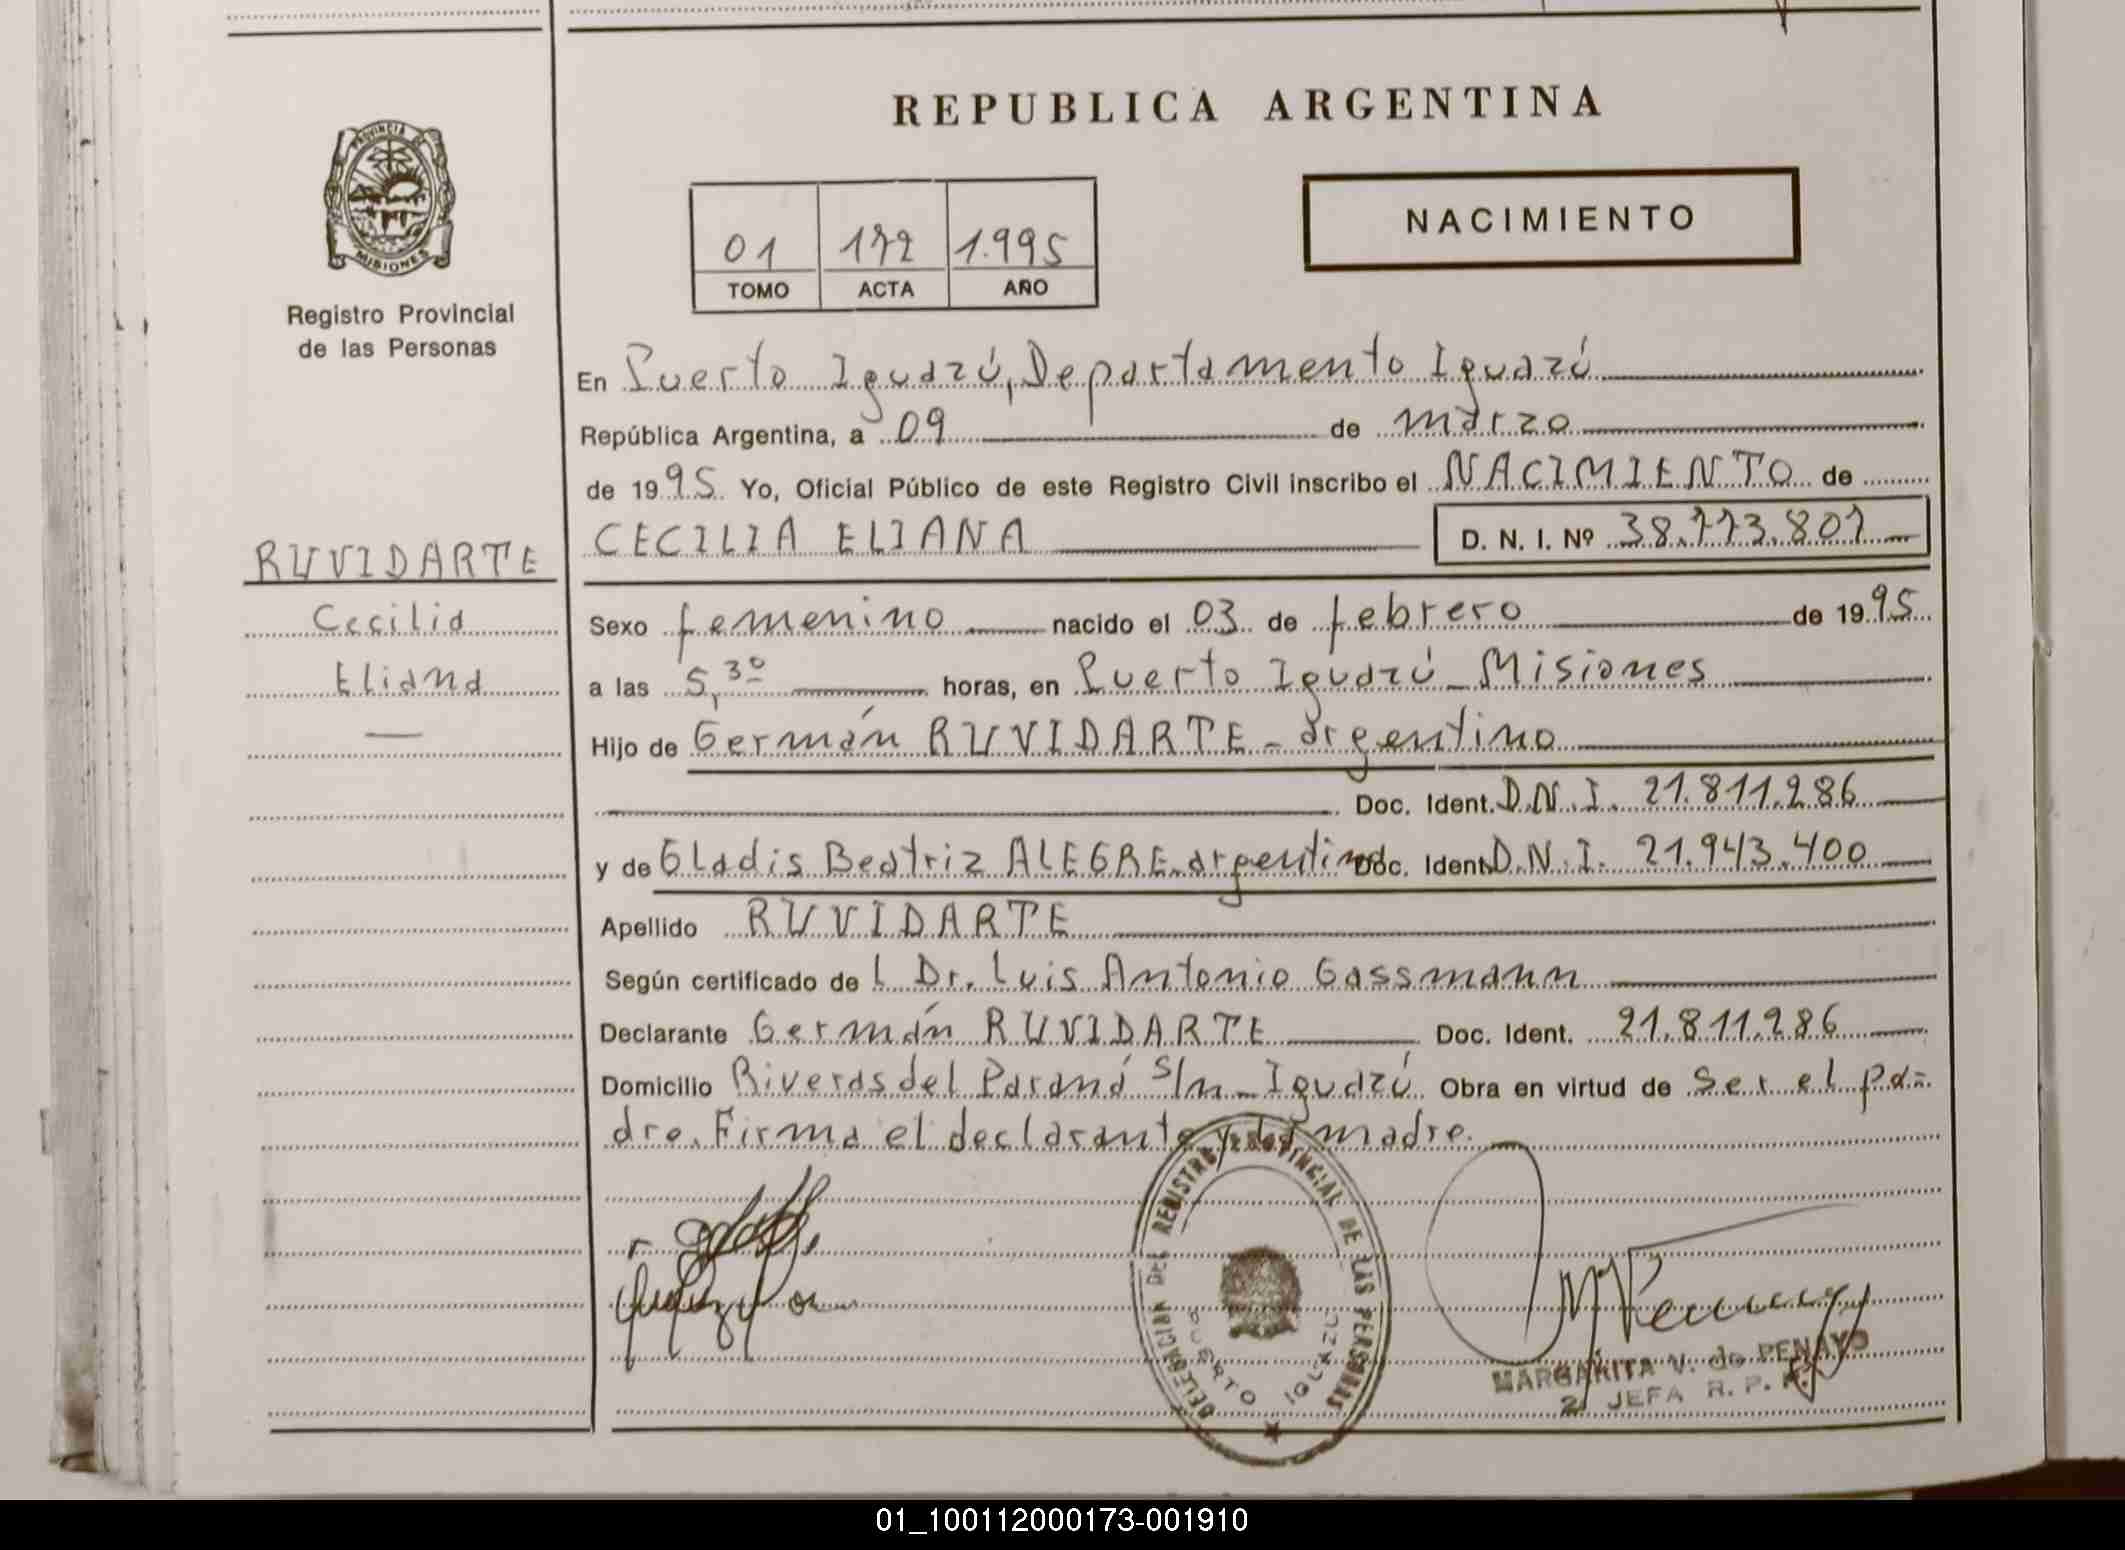 REPUBLICA ARGENTINA
PROVINCIA DE
MISIONES
Registro Provincial
de las Personas
NACIMIENTO
01 172 1.995
TOMO ACTA AÑO
En Puerto Iguazú, Departamento Iguazú
República Argentina, a 09 de marzo
de 1995 Yo, Oficial Público de este Registro Civil inscribo el NACIMIENTO de
CECILIA ELIANA D. N. I. Nº 38.773.807
RUVIDARTE
Cecilia
Eliana
Sexo femenino nacido el 03 de febrero de 1995
a las 5,30 horas, en Puerto Iguazú - Misiones
Hijo de Germán RUVIDARTE - argentino
Doc. Ident. D.N.I. 21.811.286
y de Gladis Beatriz ALEGRE - argentina Doc. Ident. D.N.I. 21.943.400
Apellido RUVIDARTE
Según certificado de l Dr. Luis Antonio Gassmann
Declarante Germán RUVIDARTE Doc. Ident. 21.811.286
Domicilio Riveras del Paraná s/n - Iguazú Obra en virtud de ser el pa=
dre. Firma el declarante y la madre.
DELEGACION DEL REGISTRO PROVINCIAL DE LAS PERSONAS
PUERTO IGUAZU
MARGARITA V. de PENAYO
2 JEFA R. P. P.
01_100112000173-001910